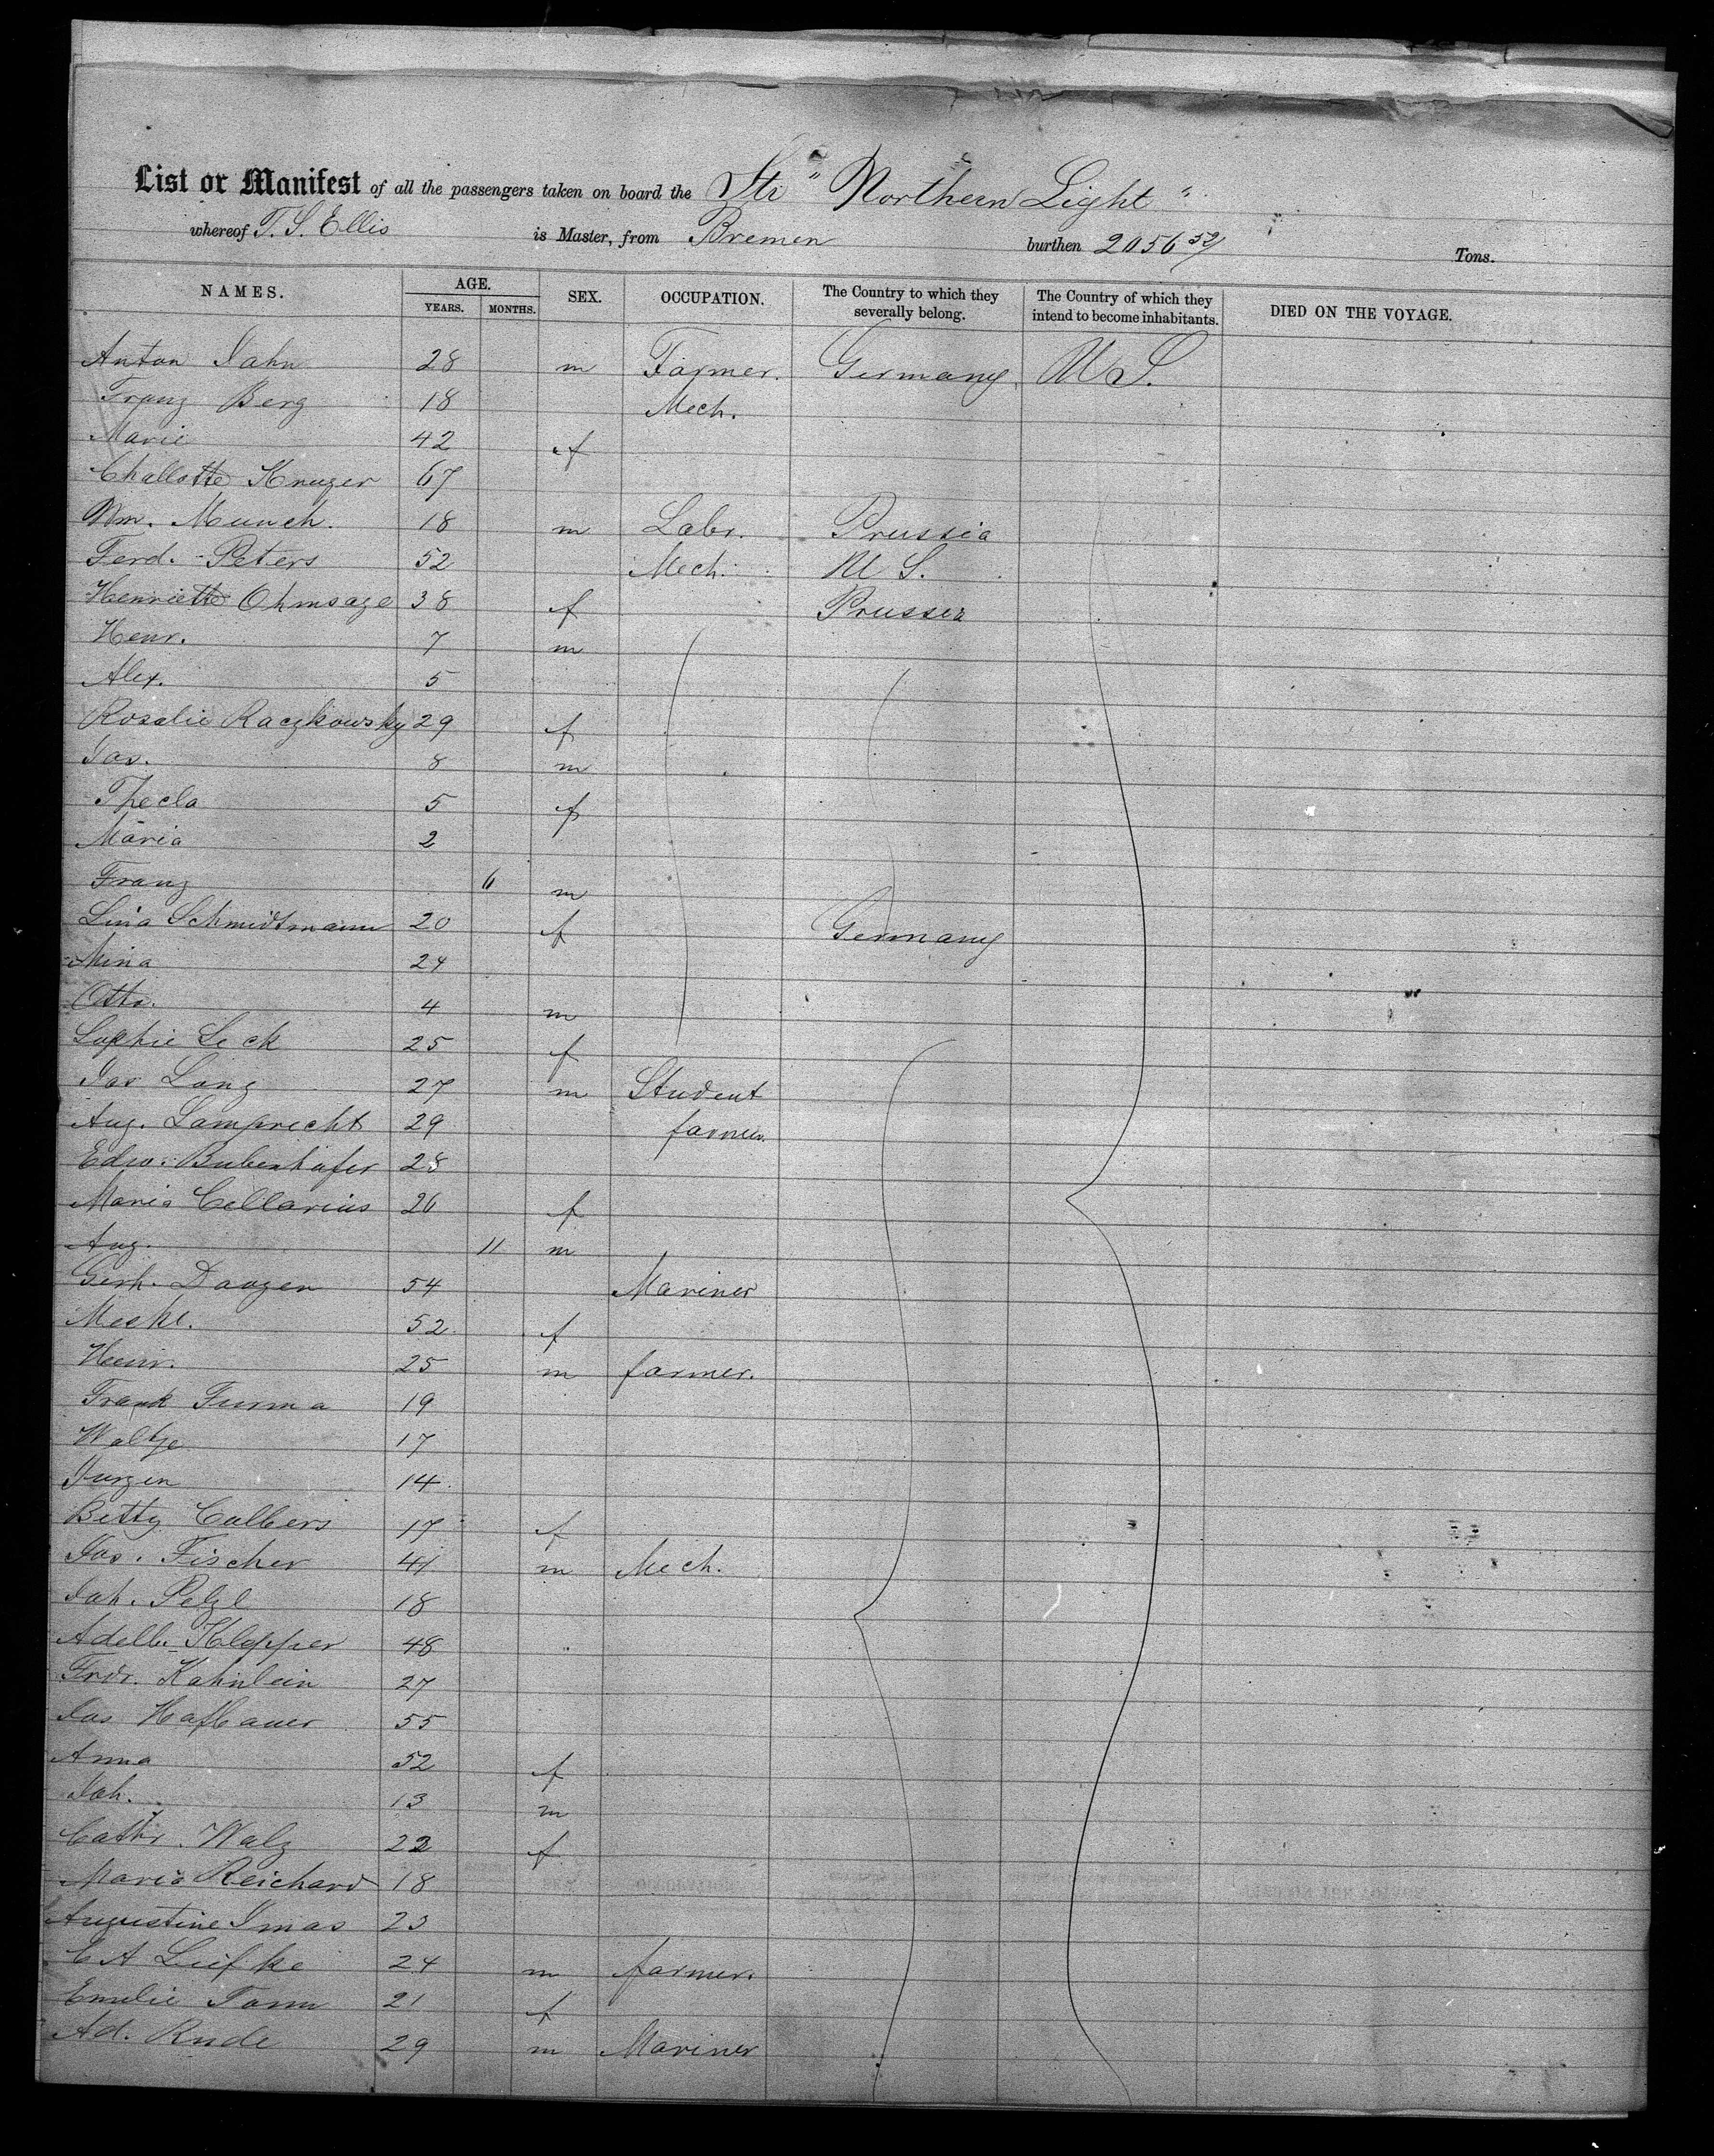 List or Manifest of all the passengers taken on board the Str "Northern Light"
whereof T. S. Ellis is Master, from Bremen burthen 2056 52/ Tons.
NAMES. AGE. YEARS. MONTHS. SEX. OCCUPATION. The Country to which they severally belong. The Country of which they intend to become inhabitants. DIED ON THE VOYAGE.
Anton Jahn 28 m Farmer. Germany U S.
Franz Berg 18 Mech.
Marie 42 f
Challotte Kruger 67
Wm. Munch. 18 m Labr. Prussia
Ferd. Peters 52 Mech. U S.
Henriette Ohmsage 38 f Prussia
Henr. 7 m
Alex. 5
Rosalie Raczkowsky 29 f
Jos. 8 m
Thecla 5 f
Maria 2
Franz 6 m
Lina Schmidtmann 20 f Germany
Mina 24
Otto. 4 m
Sophie Leck 25 f
Jos Lang 27 m Student
Aug. Lamprecht 29 farmer.
Edw. Bubenhofer 28
Maria Cellarius 26 f
Aug. 11 m
Gerh. Daogen 54 Mariner
Meske. 52 f
Heinr. 25 m farmer.
Frank Furma 19
Waltje 17
Jurgen 14
Betty Calbers 17 f
Jos. Fischer 41 m Mech.
Joh. Pelzl 18
Adelb. Klepper 48
Frdr. Kahnlein 27
Jos Hafbauer 55
Anna 52 f
Joh. 13 m
Cathr. Walz 22 f
Maria Reichard 18
Augustine Imas 23
C A Luifke 24 m farmer.
Emelie Tamm 21 f
Ad. Rude 29 m Mariner